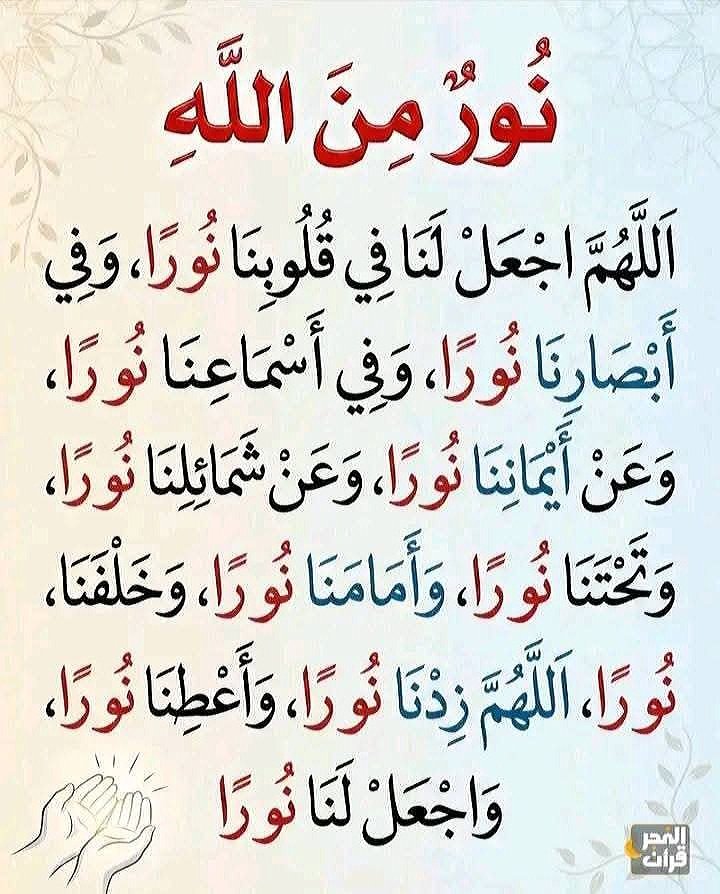 نُورٌ مِنَ اللَّهِ
اَللَّهُمَّ اجْعَلْ لَنَا فِي قُلُوبِنَا نُورًا، وَفِي
أَبْصَارِنَا نُورًا، وَفِي أَسْمَاعِنَا نُورًا،
وَعَنْ أَيْمَانِنَا نُورًا، وَعَنْ شَمَائِلِنَا نُورًا،
وَتَحْتَنَا نُورًا، وَأَمَامَنَا نُورًا، وَخَلْفَنَا،
نُورًا، اَللَّهُمَّ زِدْنَا نُورًا، وَأَعْطِنَا نُورًا،
وَاجْعَلْ لَنَا نُورًا
قرآن